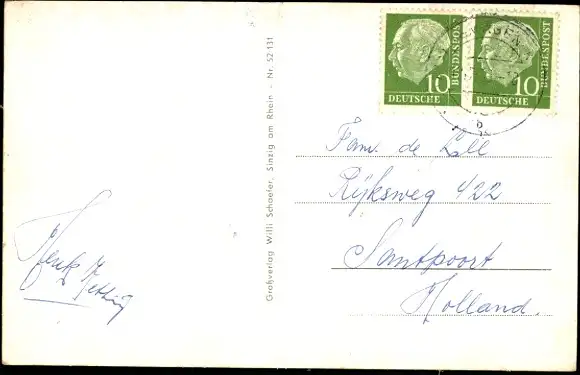 10
BUNDESPOST
DEUTSCHE
10
BUNDESPOST
DEUTSCHE
Großverlag Willi Schaefer, Sinzig am Rhein - Nr. 52 131
Fam. de
Rijksweg 422
Santpoort
Holland.
Henk